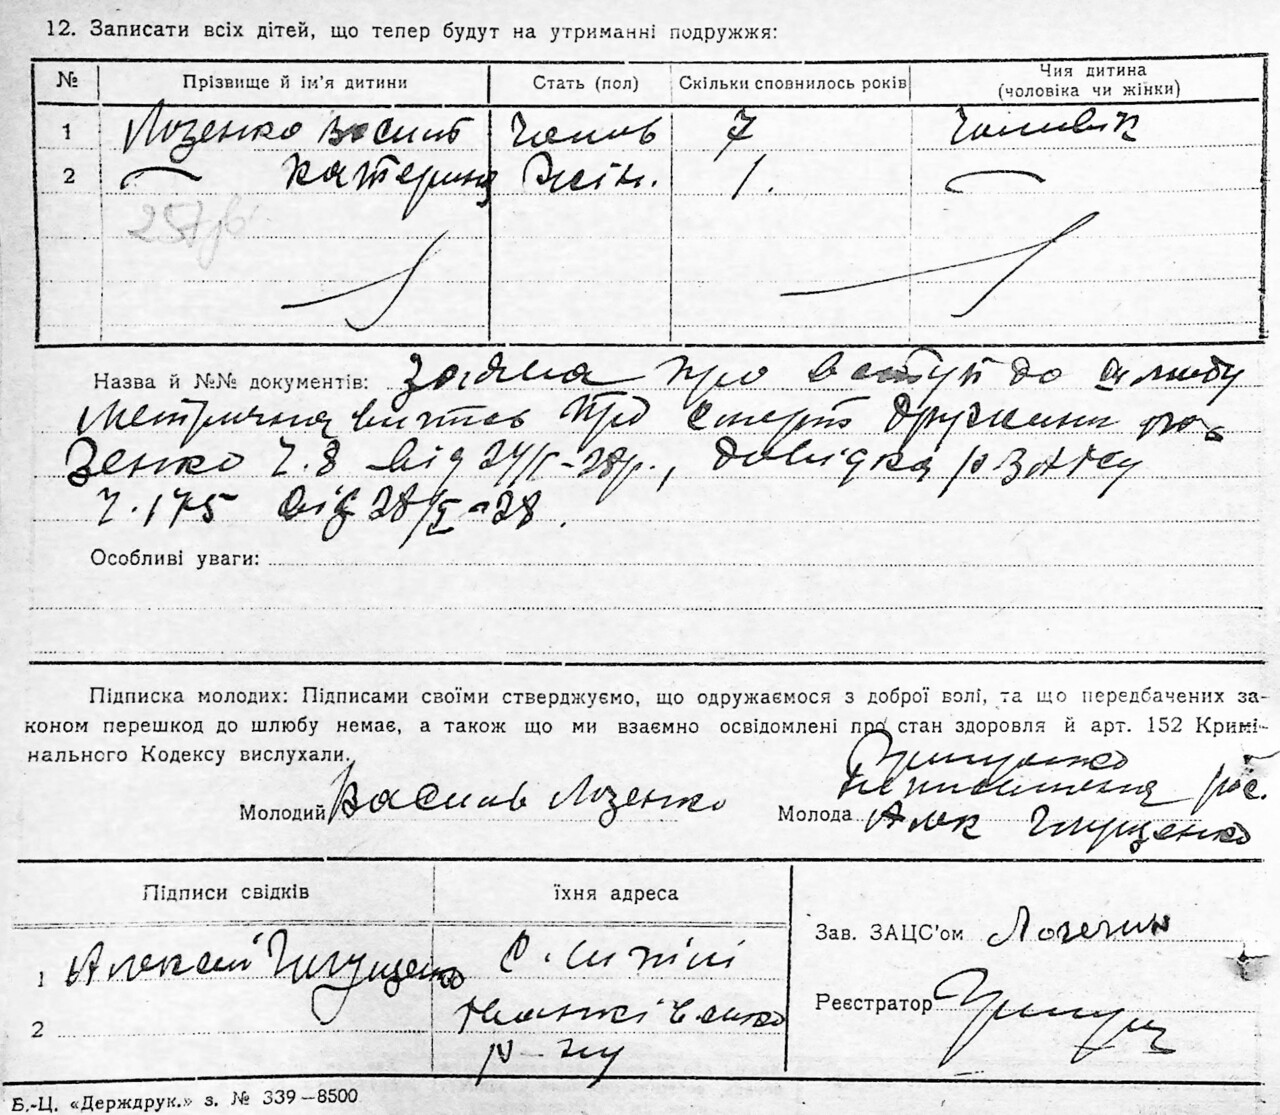 12. Записати всіх дітей, що тепер будут на утриманні подружжя:
№ Прізвище й ім'я дитини Стать (пол) Скільки сповнилось років Чия дитина (чоловіка чи жінки)
1 Лозенко Василь чолов 7 Чоловік
2 Катерина жін. 1.
Назва й №№ документів: Заява про вступ до шлюбу
Метрична витяг про смерть дружини Ло-
зенко Ч. 8 від 24/І-28р., довідка
Ч. 175 від 28/ -28.
Особливі уваги:
Підписка молодих: Підписами своїми стверджуємо, що одружаємося з доброї волі, та що передбачених за-
коном перешкод до шлюбу немає, а також що ми взаємно освідомлені про стан здоровля й арт. 152 Кримі-
нального Кодексу вислухали.
Молодий Василь Лозенко
неписьменна рос.
Молода Алек Глущенко
Підписи свідків їхня адреса
1 Алексей Глущенко С.
2
р-ну
Зав. ЗАЦС'ом
Реєстратор
Б.-Ц. «Держдрук.» з. № 339—8500